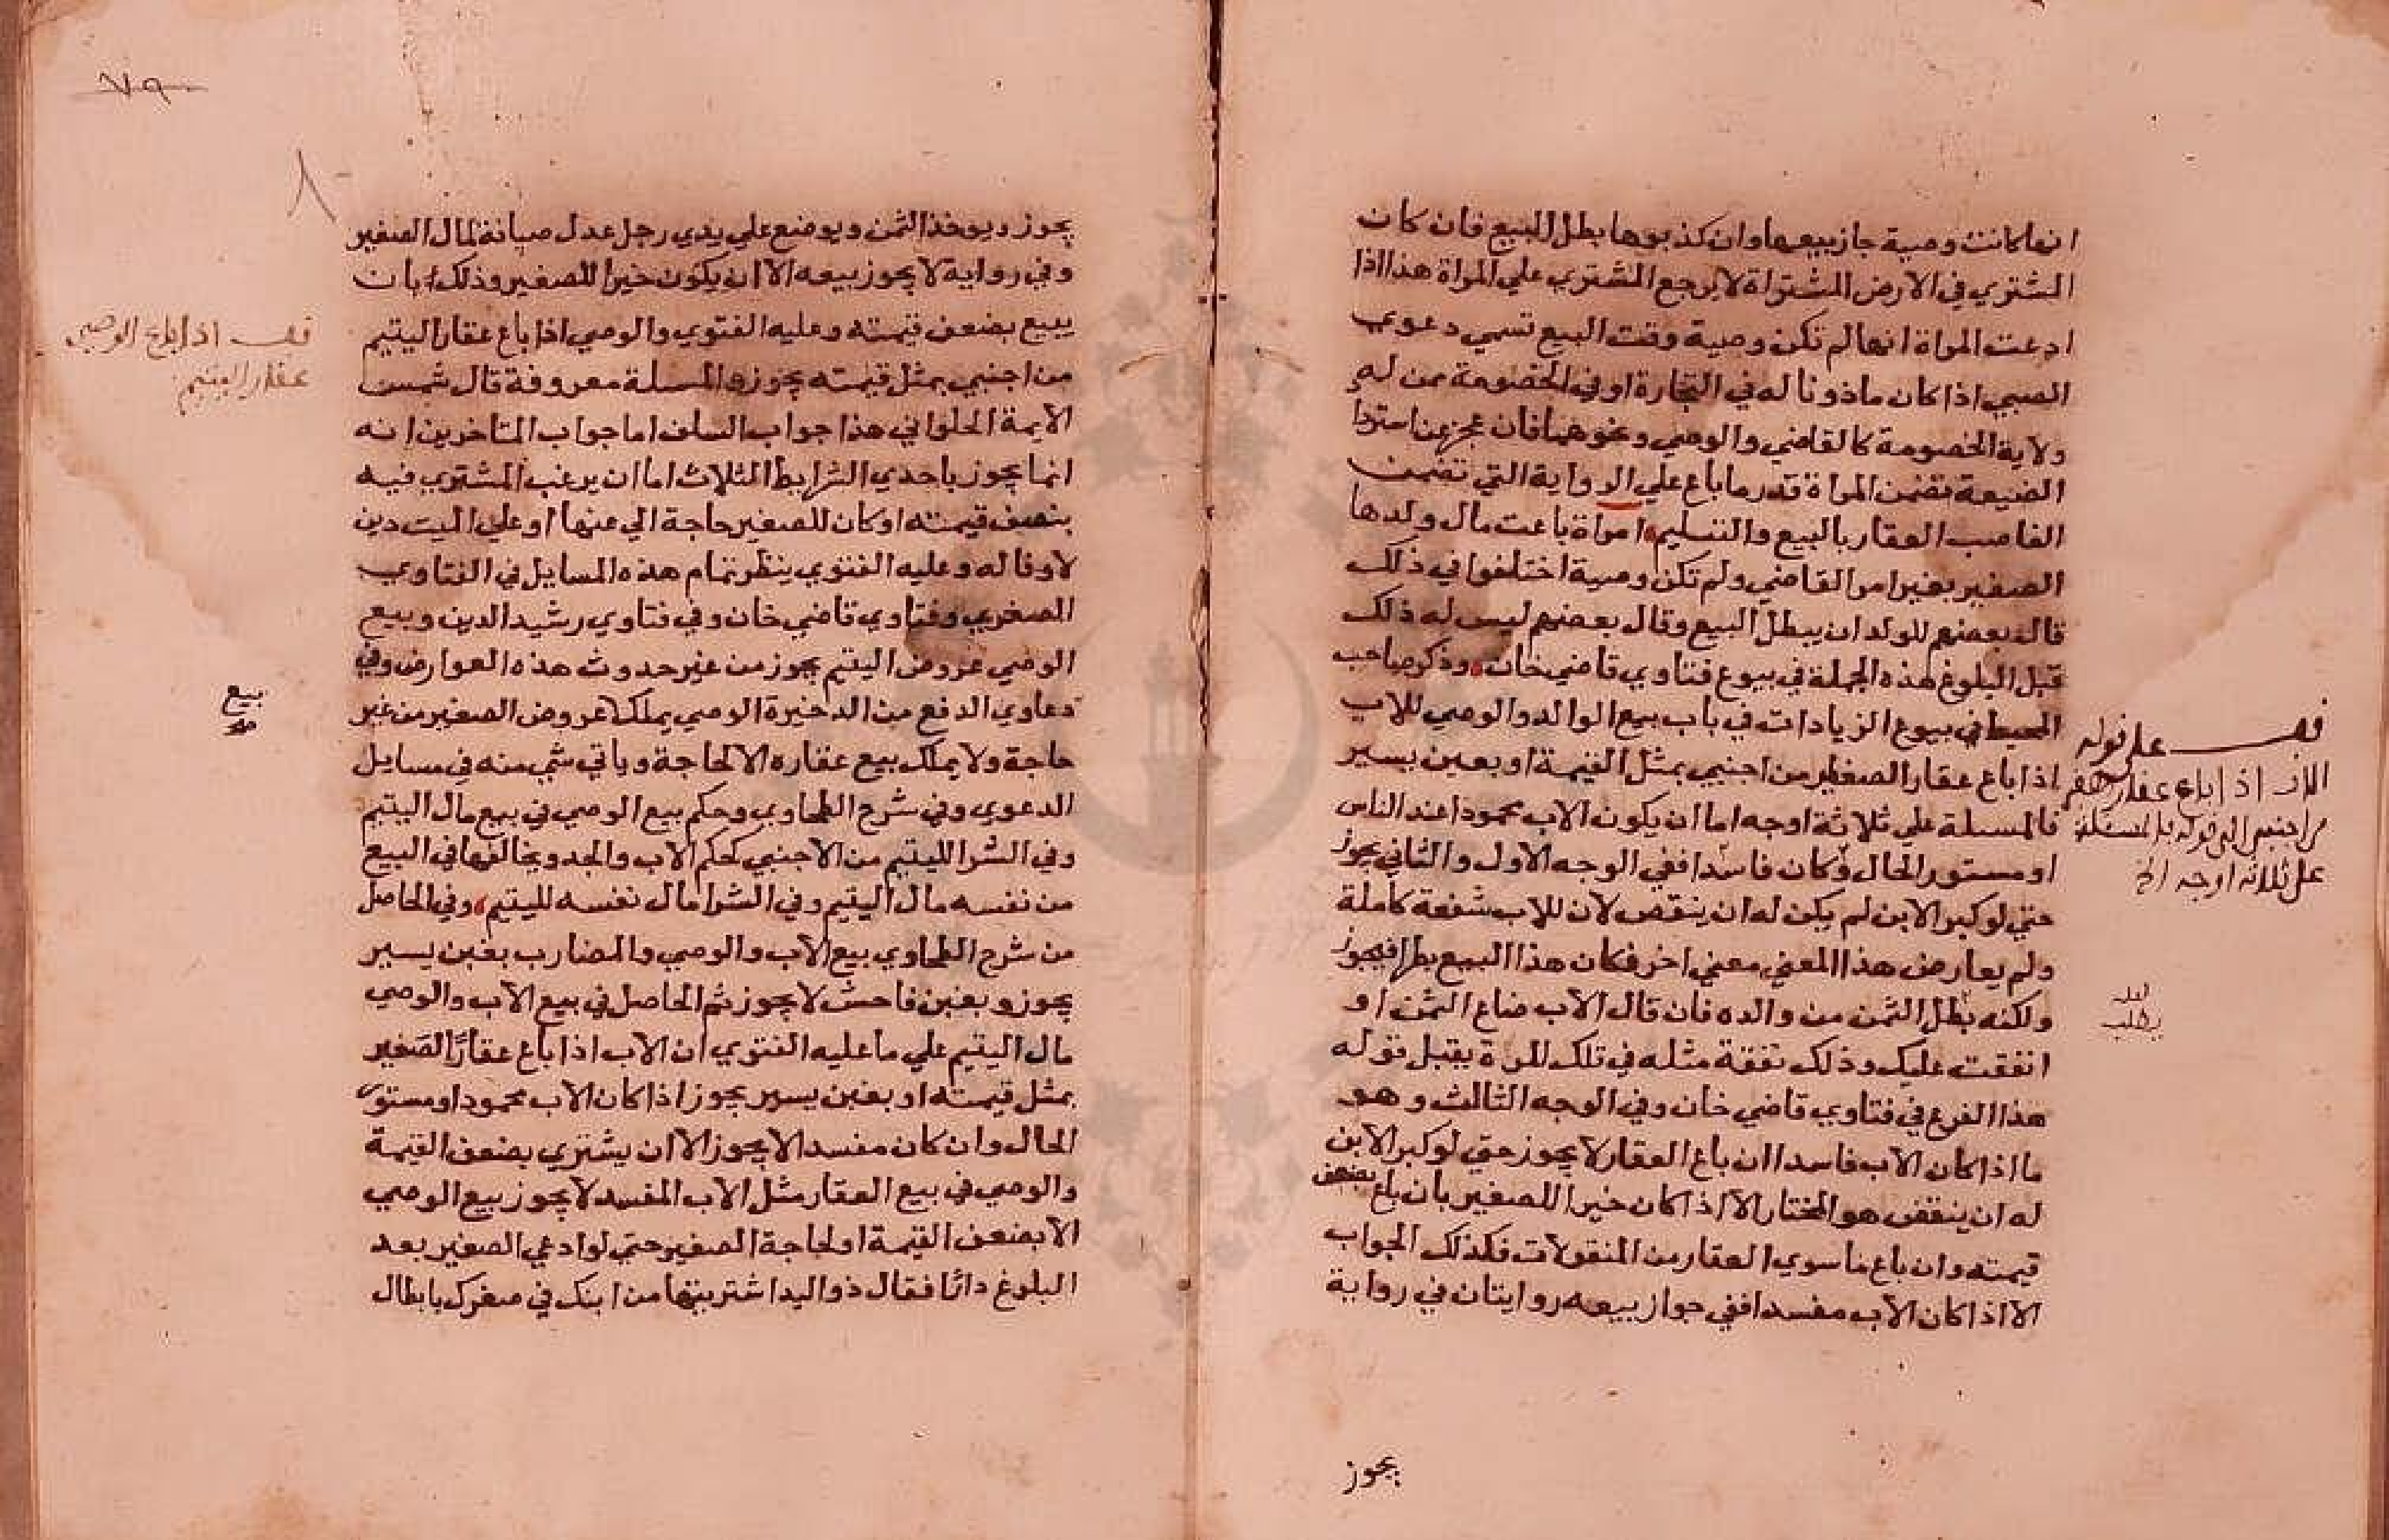 انها كانت وصية جاز بيعها وان كذبوها بطل البيع فان كان
المشتري في الارض المشتراة لا يرجع المشتري علي المراة هذا اذا
ادعت المراة انها لم تكن وصية وقت البيع تسمي دعوي
الصبي اذا كان ماذونا له في التجارة او في الخصومة عن له
ولاية الخصومة كالقاضي والوصي ونحوهما فان عجز عن استرداد
الضيعة تضمن المراة قدر ما باع علي الرواية التي تضمن
الغاصب العقار بالبيع والتسليم امراة باعت مال ولدها
الصغير بغير امر القاضي ولم تكن وصية اختلفوا في ذلك
قال بعضهم للولد ان يبطل البيع وقال بعضهم ليس له ذلك
قبل البلوغ هذه الجملة في بيوع فتاوي قاضي خان وذكر صاحب
المحيط في بيوع الزيادات في باب بيع الوالد والوصي للاب
اذا باع عقار الصغير من اجنبي بمثل القيمة او بغبن يسير
فالمسئلة علي ثلاثة اوجه اما ان يكون الاب محمودا عند الناس
او مستور الحال وكان فاسدا ففي الوجه الاول والثاني يجوز
حتي لو كبر الابن لم يكن له ان ينقض لان للاب شفعة كاملة
ولم يعارض هذا المعني معني اخر فكان هذا البيع فيجوز
ولكنه بطل الثمن من والده فان قال الاب ضاع الثمن او
انفقت عليك وذلك نفقة مثله في تلك المدة يقبل قوله
هذا الفرع في فتاوي قاضي خان وفي الوجه الثالث وهو
ما اذا كان الاب فاسدا ان باع العقار لا يجوز حتي لو كبر الابن
له ان ينقض هو المختار الا اذا كان خيرا للصغير بان باع بضعف
قيمته وان باع ما سوي العقار من المنقولات فكذلك الجواب
الا اذا كان الاب مفسدا ففي جواز بيعه روايتان في رواية
يجوز
علي قوله
الاب اذا باع عقار صغير
من اجنبي الي قوله فالمسئلة
علي ثلاثة اوجه الخ
لعله
يطلب
يجوز ويوخذ الثمن ويوضع علي يدي رجل عدل صيانة لمال الصغير
وفي رواية لا يجوز بيعه الا ان يكون خيرا للصغير وذلك بان
يبيع بضعف قيمته وعليه الفتوي والوصي اذا باع عقار اليتيم
من اجنبي بمثل قيمته يجوز والمسلة معروفة قال شمس
الايمة الحلواني هذا جواب السلف اما جواب المتاخرين انه
انما يجوز باحدي الشرايط الثلاث اما ان يرغب المشتري فيه
بنصف قيمته او كان للصغير حاجة الي عنها او علي الميت دين
لا وفا له وعليه الفتوي ينظر تمام هذه المسايل في الفتاوي
الصغري وفتاوي قاضي خان وفي فتاوي رشيد الدين وبيع
الوصي عروض اليتيم يجوز من غير حدوث هذه العوارض وفي
دعاوي الدفع من الدخيرة الوصي يملك عروض الصغير من غير
حاجة ولا يملك بيع عقاره الا لحاجة وياتي شي منه في مسايل
الدعوي وفي شرح الطحاوي وحكم بيع الوصي في بيع مال اليتيم
وفي الشرا لليتيم من الاجنبي كحكم الاب والجد ويخالفها في البيع
من نفسه مال اليتيم وفي الشرا مال نفسه لليتيم وفي الحاصل
من شرح الطحاوي بيع الاب والوصي والمضارب بغبن يسير
يجوز وبغبن فاحش لا يجوز ثم الحاصل في بيع الاب والوصي
مال اليتيم علي ما عليه الفتوي ان الاب اذا باع عقار الصغير
بمثل قيمته او بغبن يسير يجوز اذا كان الاب محمودا او مستور
الحال وان كان مفسدا لا يجوز الا ان يشتري بضعف القيمة
والوصي في بيع العقار مثل الاب المفسد لا يجوز بيع الوصي
الا بضعف القيمة او لحاجة الصغير حتي لو ادعي الصغير بعد
البلوغ دارا فقال ذو اليد اشتريتها من ابنك في صغرك بابطال
اذا باع الوصي
عقار اليتيم
بيع